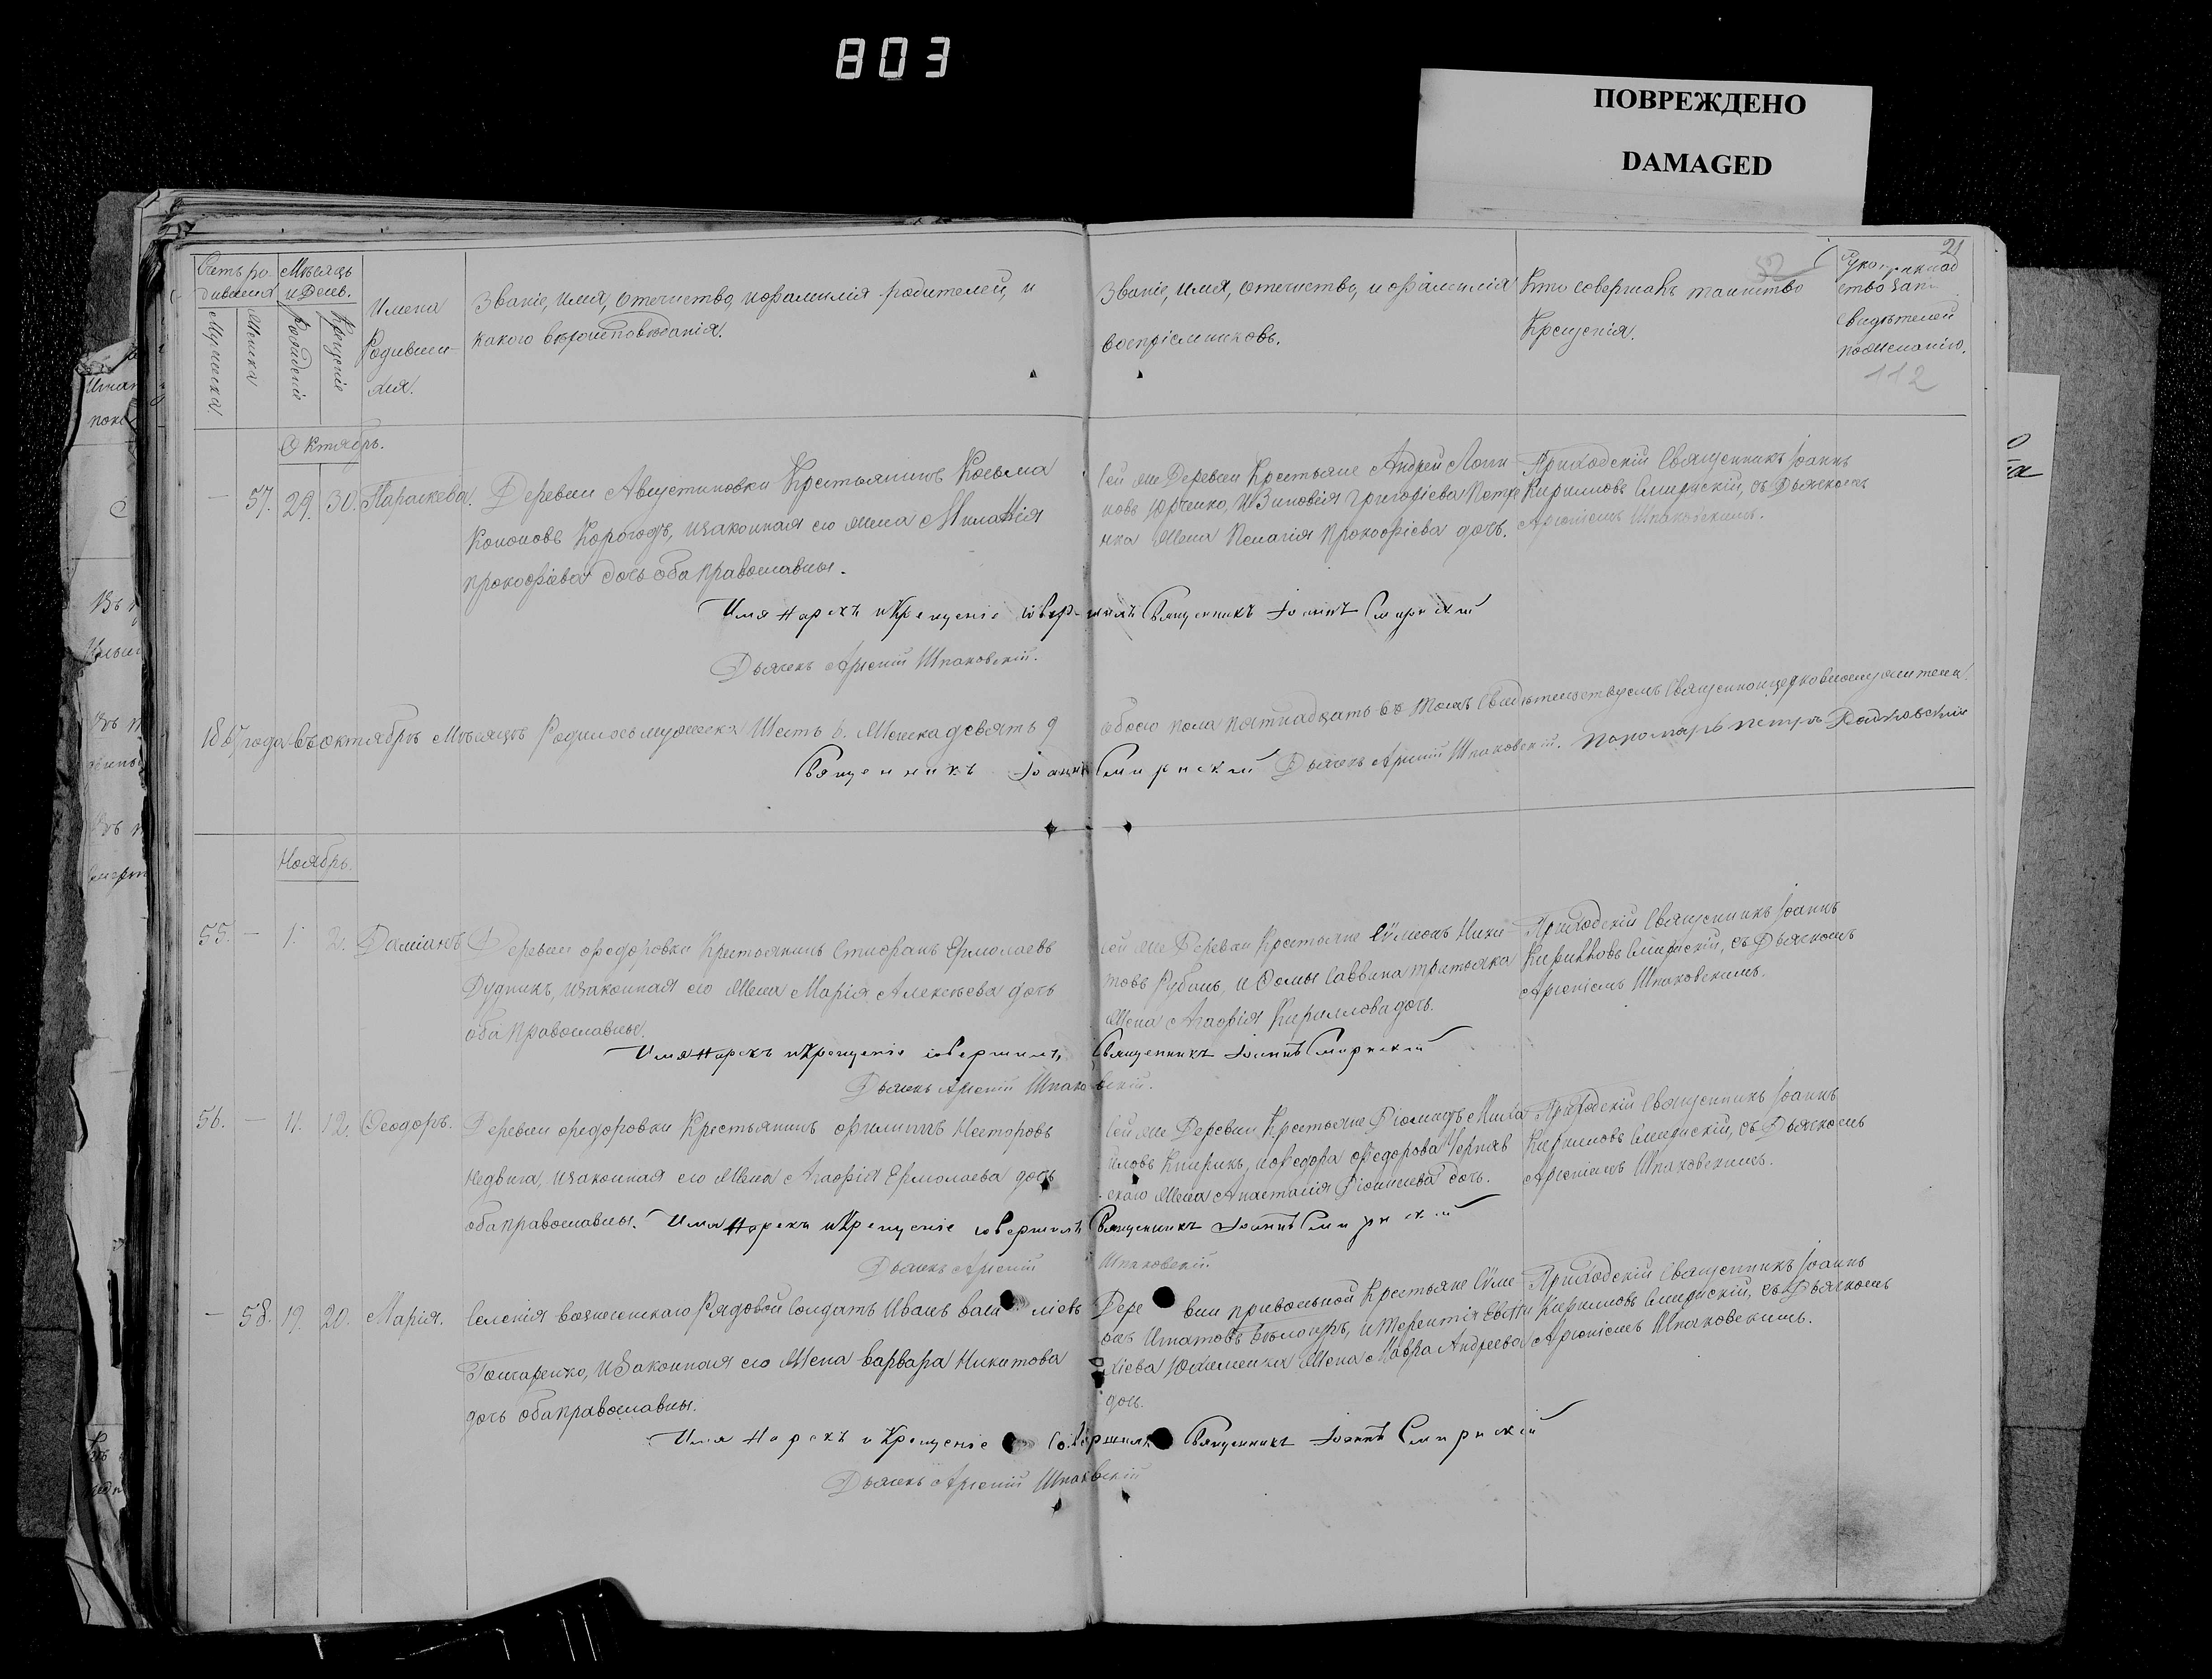 803
ПОВРЕЖДЕНО
DAMAGED
21
52
112
Счетъ ро-
дившихся
Мѣсяцъ
и День.
Мужеска.
Женска
Рожденія
Крещенія
Имена
Родивши-
хся.
Званіе, имя, отечество, и фамилія родителей, и
какого вѣроисповѣданія.
Званіе, имя, отечество, и фамилія
воспріемниковъ.
Кто совершалъ таинство
Крещенія.
свидѣтелей
по желанію.
Октябрь.
— 57. 29. 30. Параскева.
Деревни Августиновки Крестьянинъ Косьма
Кононовъ Корогодъ, и законная его жена Миланія
Прокофіева дочь оба православны.
сей же Деревни Крестьяне Андрей Логи-
новъ Юрченко, и Зиновія Григоріева Петре
нка жена Пелагія Прокофіева дочь.
Приходскій Священникъ Іоаннъ
Кирилловъ Смирнскій, съ Дьячкомъ
Арсеніемъ Шпаковскимъ.
Имя нарекъ и Крещеніе совершилъ Священникъ Іоаннъ Смирнскій
Дьячекъ Арсеній Шпаковскій.
1865 года въ октябрѣ Мѣсяцѣ Родилось мужеска Шесть 6. Женска девять 9
обоего пола пятнадцать въ томъ свидѣтельствуемъ Священноцерковнослужители.
Священникъ Іоаннъ Смирнскій Дьячекъ Арсеній Шпаковскій. Пономарь Петръ
Ноябрь.
55. — 1. 2. Даміанъ
Деревни Федоровки Крестьянинъ Стефанъ Ермолаевъ
Дудникъ, и законная его жена Марія Алексѣева дочь
оба православны.
сей же Деревни Крестьяне Сѵмеонъ Ники-
товъ Рубанъ, и Фомы Саввина Третьяка
жена Агафія Кириллова дочь.
Приходскій Священникъ Іоаннъ
Кирилловъ Смирнскій, съ Дьячкомъ
Арсеніемъ Шпаковскимъ.
Имя нарекъ и Крещеніе совершилъ Священникъ Іоаннъ Смирнскій
Дьячекъ Арсеній Шпаковскій.
56. — 11. 12. Ѳеодоръ.
Деревни Федоровки Крестьянинъ Филиппъ Несторовъ
Недвига, и законная его жена Агафія Ермолаева дочь
оба православны.
сей же Деревни Крестьяне Діомидъ Миха
иловъ Кширикъ, и Федора Федорова Черняв
скаго жена Анастасія Діонисіева дочь.
Приходскій Священникъ Іоаннъ
Кирилловъ Смирнскій, съ Дьячкомъ
Арсеніемъ Шпаковскимъ.
Имя нарекъ и Крещеніе совершилъ Священникъ Іоаннъ Смирнскій
Дьячекъ Арсеній Шпаковскій.
— 58. 19. 20. Марія.
Селенія Вознесенскаго Рядовой Солдатъ Иванъ Васи ліевъ
Гончаренко, и Законная его жена Варвара Никитова
дочь оба православны.
Дере вни Привольной Крестьяне Сѵме
онъ Игнатовъ и Терентія Евти
хіева Юхименка жена Мавра Андреева
дочь.
Приходскій Священникъ Іоаннъ
Кирилловъ Смирнскій, съ Дьячкомъ
Арсеніемъ Шпаковскимъ.
Имя нарекъ и Крещеніе совершилъ Священникъ Іоаннъ Смирнскій
Дьячекъ Арсеній Шпаковскій